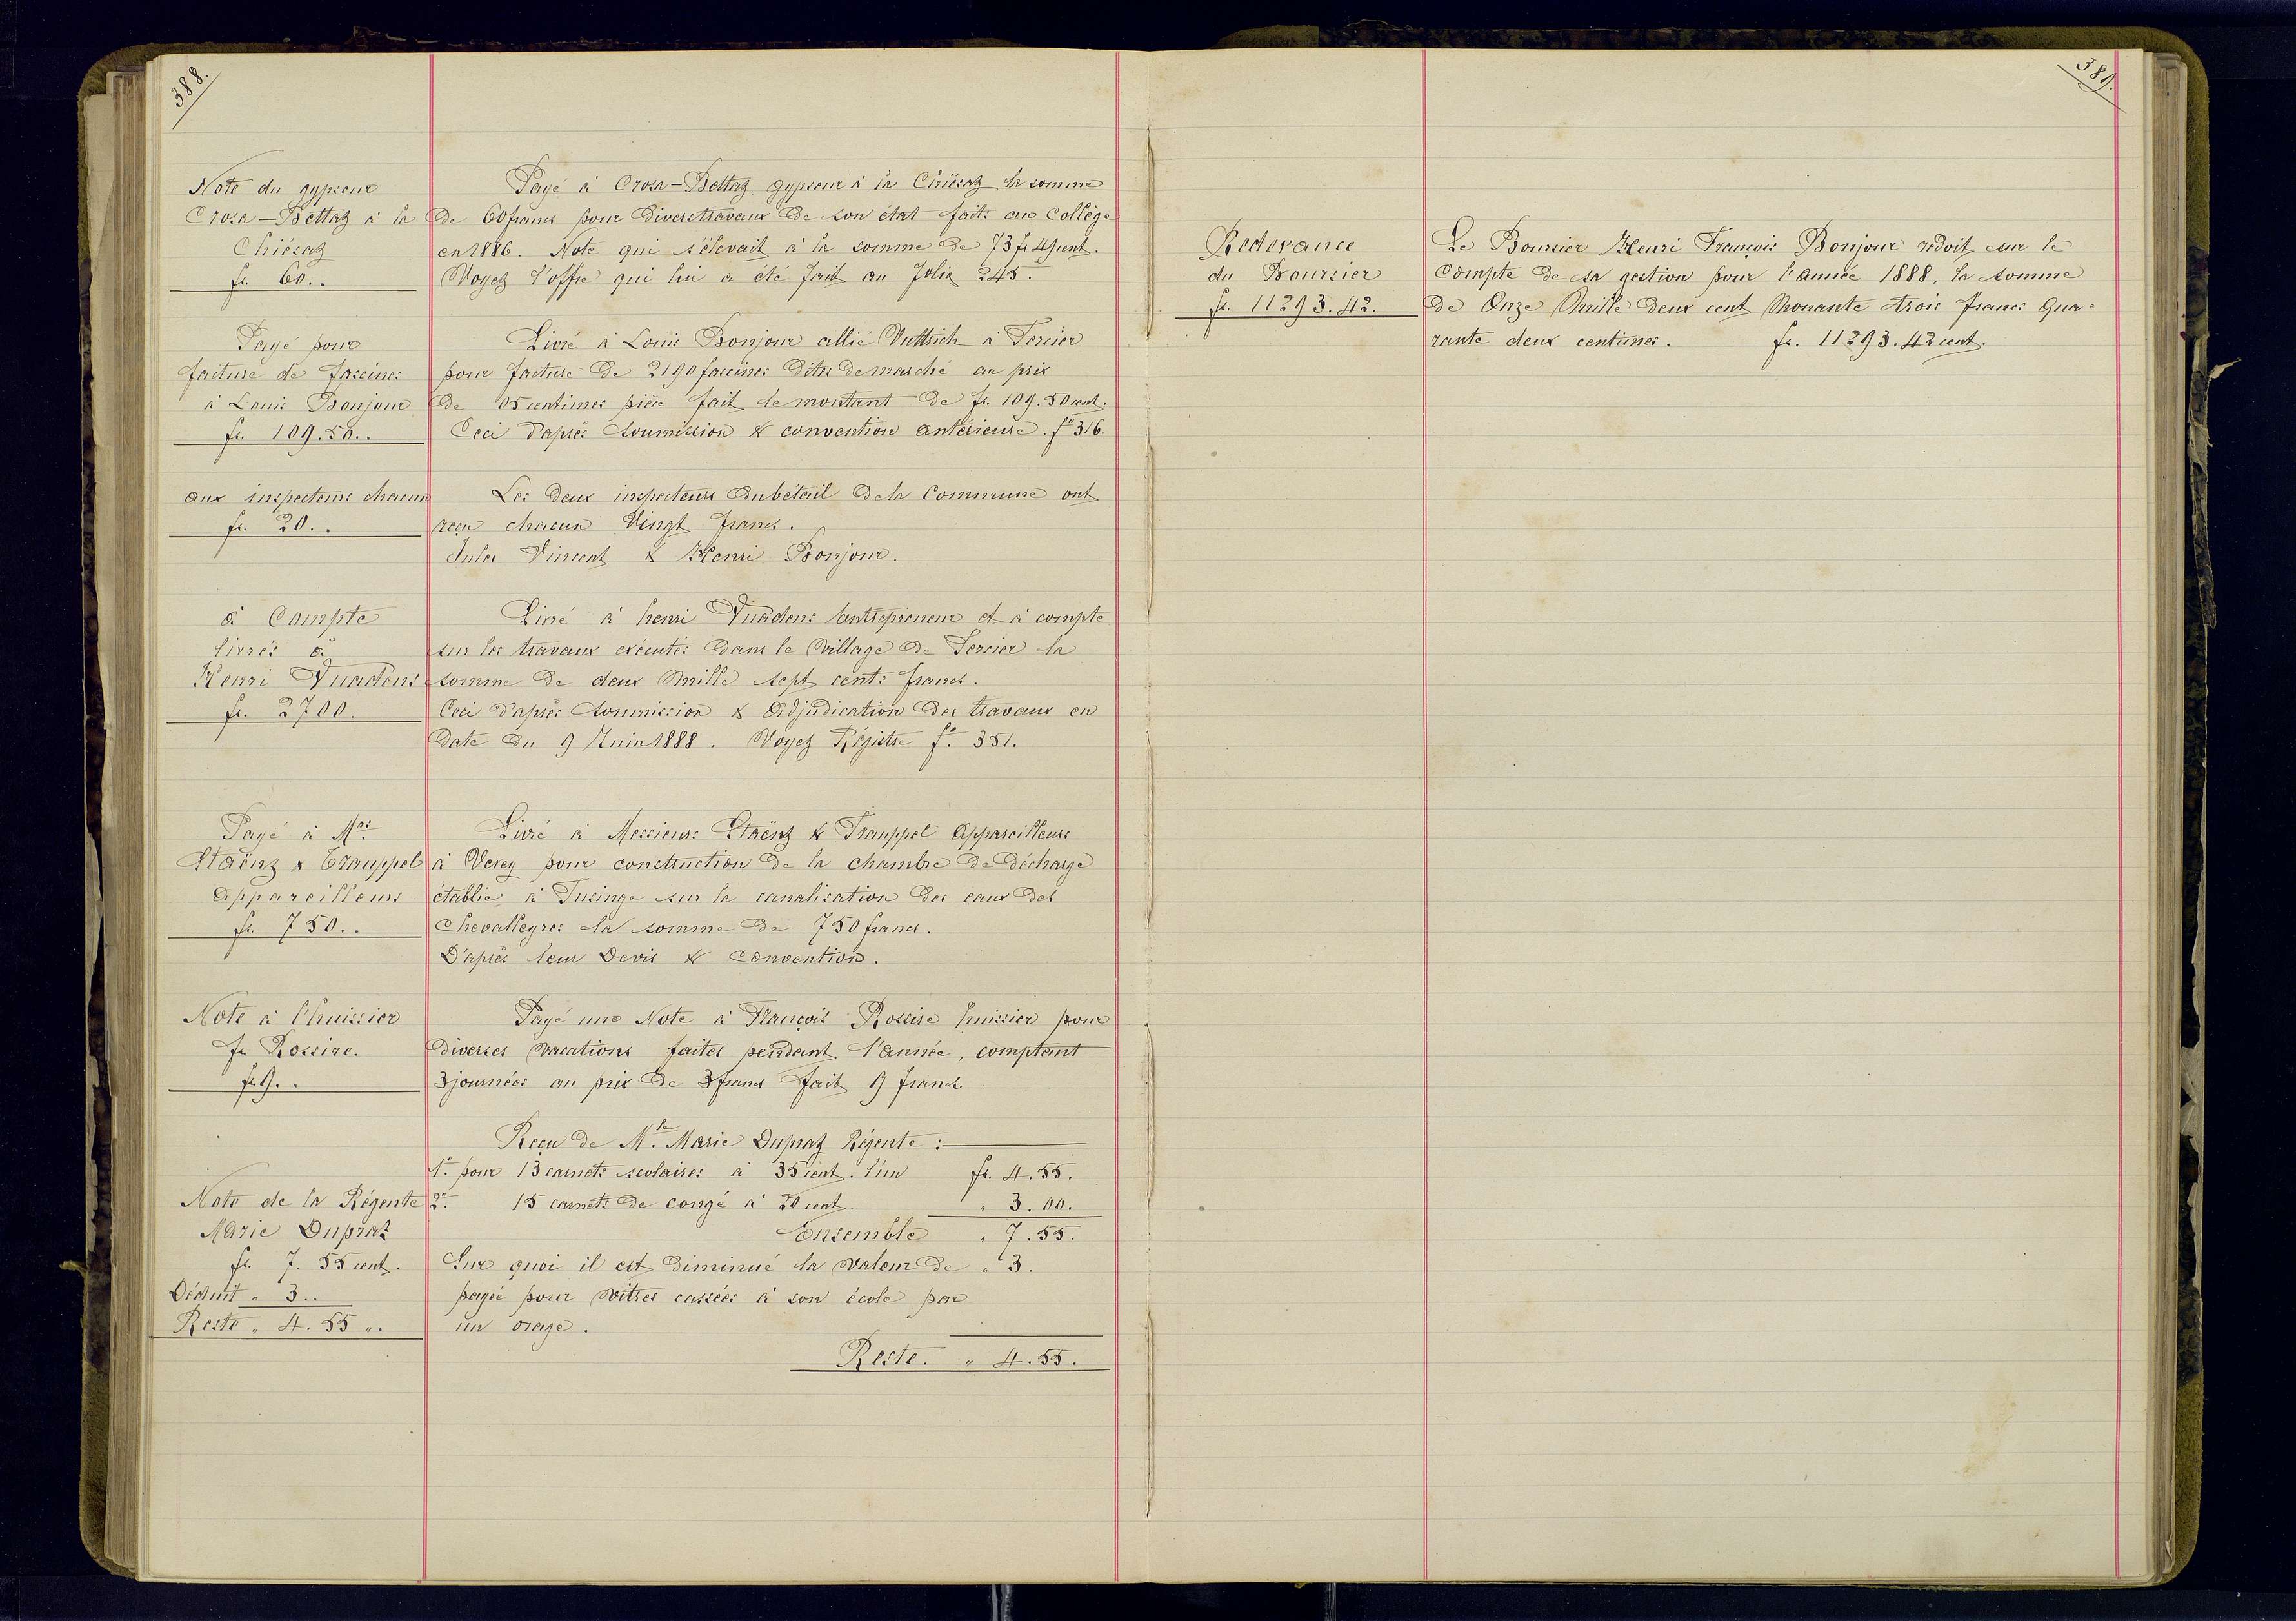 388.
Note du gypseur
Crosa-Bettaz à la
Chiésaz
fr. 60..
Payé à Crosa-Bettaz gypseur à la Chiésaz la somme
de 60 francs pour divers travaux de son état faits au Collège
en 1886. Note qui s'élevait à la somme de 73 fr. 49 cent.
Voyez l'offre qui lui a été fait au folio 245.
Payé pour
facture de fascines
à Louis Bonjour
fr. 109.50..
Livré à Louis Bonjour allié Vuttrich à Tercier
pour facture de 2190 fascines dites de marché au prix
de 05 centimes pièce fait le montant de fr. 109.50 cent.
Ceci d'après soumission & convention antérieure. fº 316.
aux inspecteurs chacun
fr. 20..
Les deux inspecteurs du bétail de la Commune ont
reçu chacun Vingt francs.
Jules Vincent & Henri Bonjour.
à Compte
livrés à
Henri Vuadens
fr. 2700.
Livré à henri Vuadens entrepreneur et à compte
sur les travaux exécutés dans le Village de Tercier la
somme de deux mille sept cents francs.
Ceci d'après soumission & Adjudication des travaux en
date du 9 Juin 1888. Voyez Régistre fº. 351.
Payé à Mrs.
Staënz & Trauppel
appareilleurs
fr. 750..
Livré à Messieurs Staënz & Trauppel Appareilleurs
à Vevey pour construction de la chambre de décharge
établie à Tusinge sur la canalisation des eaux des
Chevalleyres la somme de 750 francs.
D'après leur Devis & Convention.
Note à l'huissier
fr Rossire.
fr. 9..
Payé une Note à François Rossire huissier pour
diverses vacations faites pendant l'année, comptant
3 journées au prix de 3 francs fait 9 francs
Note de la Régente
Marie Dupraz
fr. 7. 55 cent.
Déduit " 3..
Reste " 4. 55 ".
Reçu de Mle. Marie Dupraz Régente :
1º. pour 13 carnets scolaires à 35 cent. l'un fr. 4.55.
2º. 15 carnets de congé à 20 cent. " 3.00.
Ensemble " 7.55.
Sur quoi il est diminué la valeur de " 3.
payée pour vitres cassées à son école par
un orage.
Reste. " 4.55.
389.
Redevance
du Boursier
fr. 11293.42.
Le Boursier Henri François Bonjour redoit sur le
Compte de sa gestion pour l'année 1888, la somme
de Onze mille deux cent Nonante trois francs Qua=
rante deux centimes. fr. 11293.42 cent.